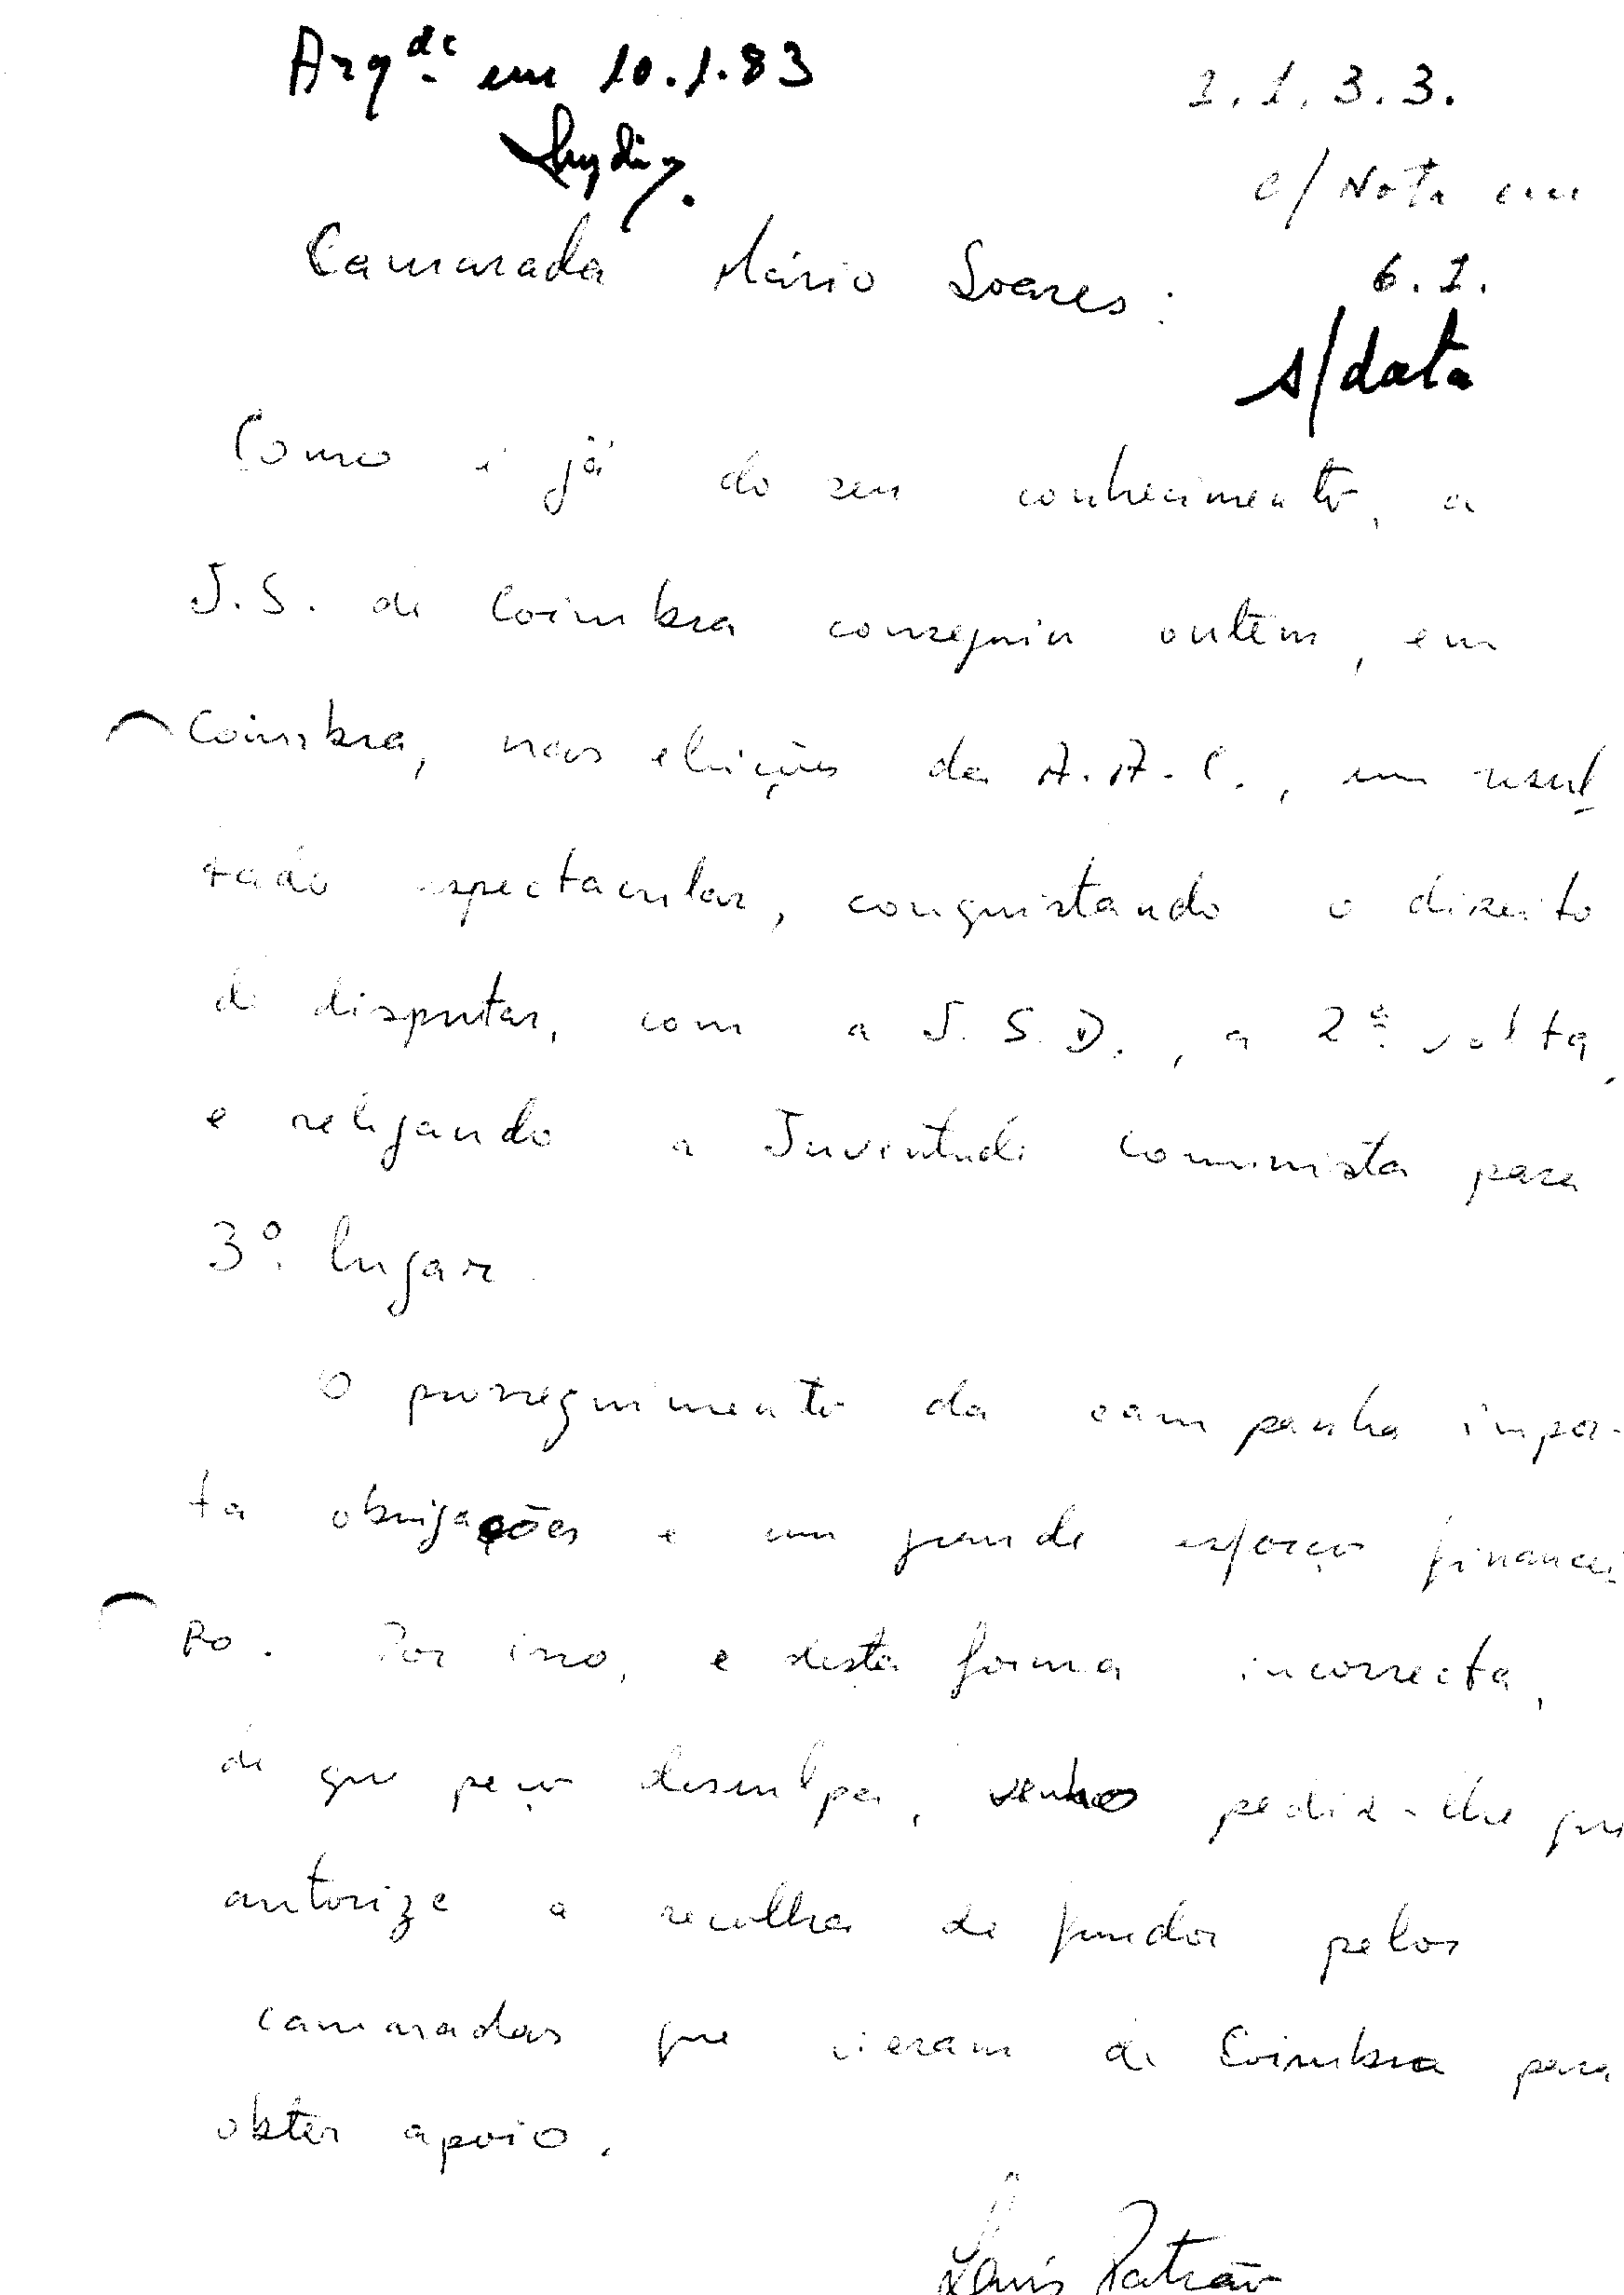 Arq.de em 10.1.83
1.1.3.3.
c/ Nota em
Camarada Mário Soares:
6.1.
s/data
Como é já do seu conhecimento, a
J.S. de Coimbra conseguiu ontem, em
Coimbra, nas eleições da A.A.C., um resul
tado espectacular, conquistando o direito
de disputar, com a J.S.D., a 2ª volta,
e relegando a Juventude Comunista para
3º. lugar.
O prosseguimento da campanha impor-
ta obrigações e um grande esforço financei
ro. Por isso, e desta forma incorrecta,
de que peço desculpa, venho pedir-lhe que
autorize a recolha de fundos pelos
camaradas que vieram de Coimbra para
obter apoio.
Luís Patrão